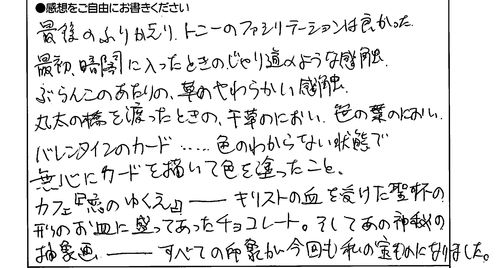 ●感想をご自由にお書きください
最後のふりかえり、トニーのファシリテーションは良かった。
最初、暗闇に入ったときのじゃり道のような感触、
ぶらんこのあたりの、草のやわらかい感触、
丸太の橋を渡ったときの、干草のにおい、色の葉のにおい、
バレンタインのカード……色のわからない状態で
無心にカードを描いて色を塗ったこと、
カフェ『恋のゆくえ』――キリストの血を受けた聖杯の
形のお皿に盛ってあったチョコレート。そしてあの神秘の
抽象画――すべての印象が今回も私の宝ものになりました。